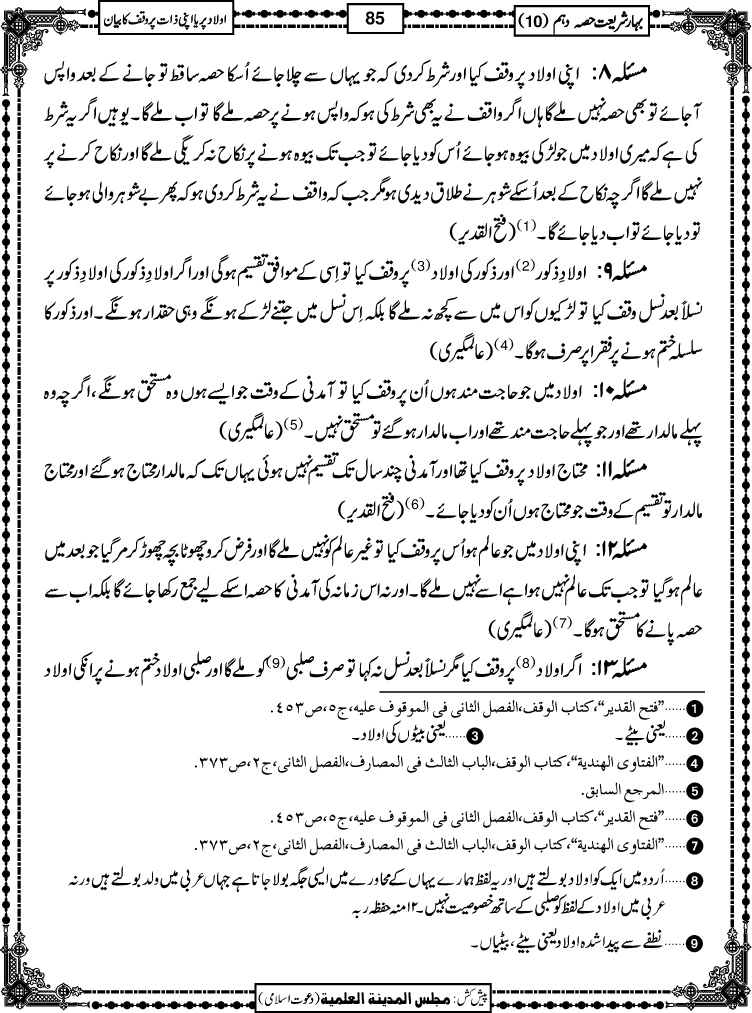 بہار شریعت حصہ دہم (10)
85
اولاد پر یا اپنی ذات پر وقف کا بیان
مسئلہ ۸: اپنی اولاد پر وقف کیا اور شرط کردی کہ جو یہاں سے چلا جائے اُسکا حصہ ساقط تو جانے کے بعد واپس
آ جائے تو بھی حصہ نہیں ملے گا ہاں اگر واقف نے یہ بھی شرط کی ہو کہ واپس ہونے پر حصہ ملے گا تو اب ملے گا۔ یوہیں اگر یہ شرط
کی ہے کہ میری اولاد میں جو لڑکی بیوہ ہو جائے اُس کو دیا جائے تو جب تک بیوہ ہونے پر نکاح نہ کریگی ملے گا اور نکاح کرنے پر
نہیں ملے گا اگرچہ نکاح کے بعد اُسکے شوہر نے طلاق دیدی ہو مگر جب کہ واقف نے یہ شرط کر دی ہو کہ پھر بے شوہر والی ہو جائے
تو دیا جائے تو اب دیا جائے گا۔(1) (فتح القدیر)
مسئلہ ۹: اولادِ ذکور(2) اور ذکور کی اولاد(3) پر وقف کیا تو اِسی کے موافق تقسیم ہوگی اور اگر اولادِ ذکور کی اولادِ ذکور پر
نسلاً بعد نسل وقف کیا تو لڑکیوں کو اس میں سے کچھ نہ ملے گا بلکہ اِس نسل میں جتنے لڑکے ہونگے وہی حقدار ہونگے۔ اور ذکور کا
سلسلہ ختم ہونے پر فقرا پر صرف ہوگا۔(4) (عالمگیری)
مسئلہ ۱۰: اولاد میں جو حاجت مند ہوں اُن پر وقف کیا تو آمدنی کے وقت جو ایسے ہوں وہ مستحق ہونگے، اگرچہ وہ
پہلے مالدار تھے اور جو پہلے حاجت مند تھے اور اب مالدار ہوگئے تو مستحق نہیں۔(5) (عالمگیری)
مسئلہ ۱۱: محتاج اولاد پر وقف کیا تھا اور آمدنی چند سال تک تقسیم نہیں ہوئی یہاں تک کہ مالدار محتاج ہوگئے اور محتاج
مالدار تو تقسیم کے وقت جو محتاج ہوں اُن کو دیا جائے۔(6) (فتح القدیر)
مسئلہ ۱۲: اپنی اولاد میں جو عالم ہو اُس پر وقف کیا تو غیر عالم کو نہیں ملے گا اور فرض کرو چھوٹا بچہ چھوڑ کر مر گیا جو بعد میں
عالم ہوگیا تو جب تک عالم نہیں ہوا ہے اسے نہیں ملے گا۔ اور نہ اس زمانہ کی آمدنی کا حصہ اسکے لیے جمع رکھا جائے گا بلکہ اب سے
حصہ پانے کا مستحق ہوگا۔(7) (عالمگیری)
مسئلہ ۱۳: اگر اولاد(8) پر وقف کیا مگر نسلاً بعد نسل نہ کہا تو صرف صلبی(9) کو ملے گا اور صلبی اولاد ختم ہونے پر انکی اولاد
1......”فتح القدیر“، کتاب الوقف، الفصل الثانی فی الموقوف علیہ، ج٥، ص٤٥٣.
2......یعنی بیٹے۔ 3......یعنی بیٹوں کی اولاد۔
4......”الفتاوی الھندیة“، کتاب الوقف، الباب الثالث فی المصارف، الفصل الثانی، ج٢، ص٣٧٣.
5......المرجع السابق.
6......”فتح القدیر“، کتاب الوقف، الفصل الثانی فی الموقوف علیہ، ج٥، ص٤٥٣.
7......”الفتاوی الھندیة“، کتاب الوقف، الباب الثالث فی المصارف، الفصل الثانی، ج٢، ص٣٧٣.
8......اُردو میں ایک کو اولاد بولتے ہیں اور یہ لفظ ہمارے یہاں کے محاورے میں ایسی جگہ بولا جاتا ہے جہاں عربی میں ولد بولتے ہیں ورنہ
عربی میں اولاد کے لفظ کو صلبی کے ساتھ خصوصیت نہیں۔ ۱۲ منہ حفظہ ربہ
9......نطفے سے پیدا شدہ اولاد یعنی بیٹے، بیٹیاں۔
پیش کش: مجلس المدینة العلمیة (دعوت اسلامی)